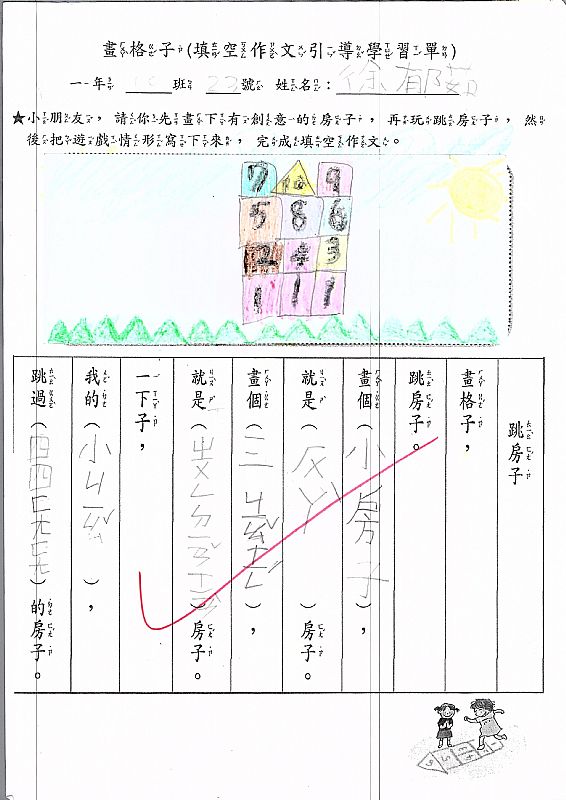 畫格子(填空作文引導學習單)
一年 班 23號 姓名：徐郁
★小朋友，請你先畫下有創意的房子，再玩跳房子，然
後把遊戲情形寫下來，完成填空作文。
7 10 9
5 8 6
2 4 3
1 1 1
跳房子
畫格子，
跳房子。
畫個(小房子)，
就是(ㄈㄤ)房子。
畫個(三)，
就是()房子。
一下子，
我的(小)，
跳過()的房子。